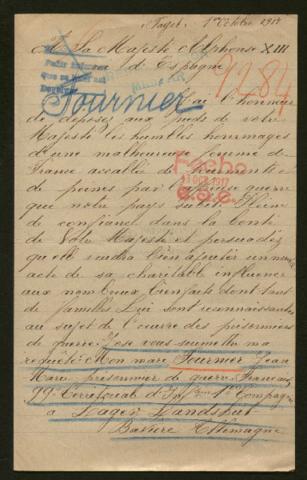 1er Octobre 1917
A Sa Majesté Alphonse XIII
d'Espagne
9284
Fournier
J'ai l'honneur
de déposer aux pieds de votre
Majesté les humbles hommages
d'une malheureuse femme de
France accablée de tourments
de peines par guerre
que notre pays subit. Pleine
de confiance dans la bonté
de Votre Majesté et persuadée
qu'elle voudra bien ajouter un
acte de sa charitable influence
aux nombreux bienfaits dont tant
de familles Lui sont reconnaissantes
au sujet de l'œuvre des prisonniers
de guerre, J'ose vous soumettre ma
requête. Mon mari Fournier Jean
Marie prisonnier de guerre Français
99 Territorial d'Inf 1re Compagnie
à Lager Landshut
Bavière Allemagne
Fecha
1917